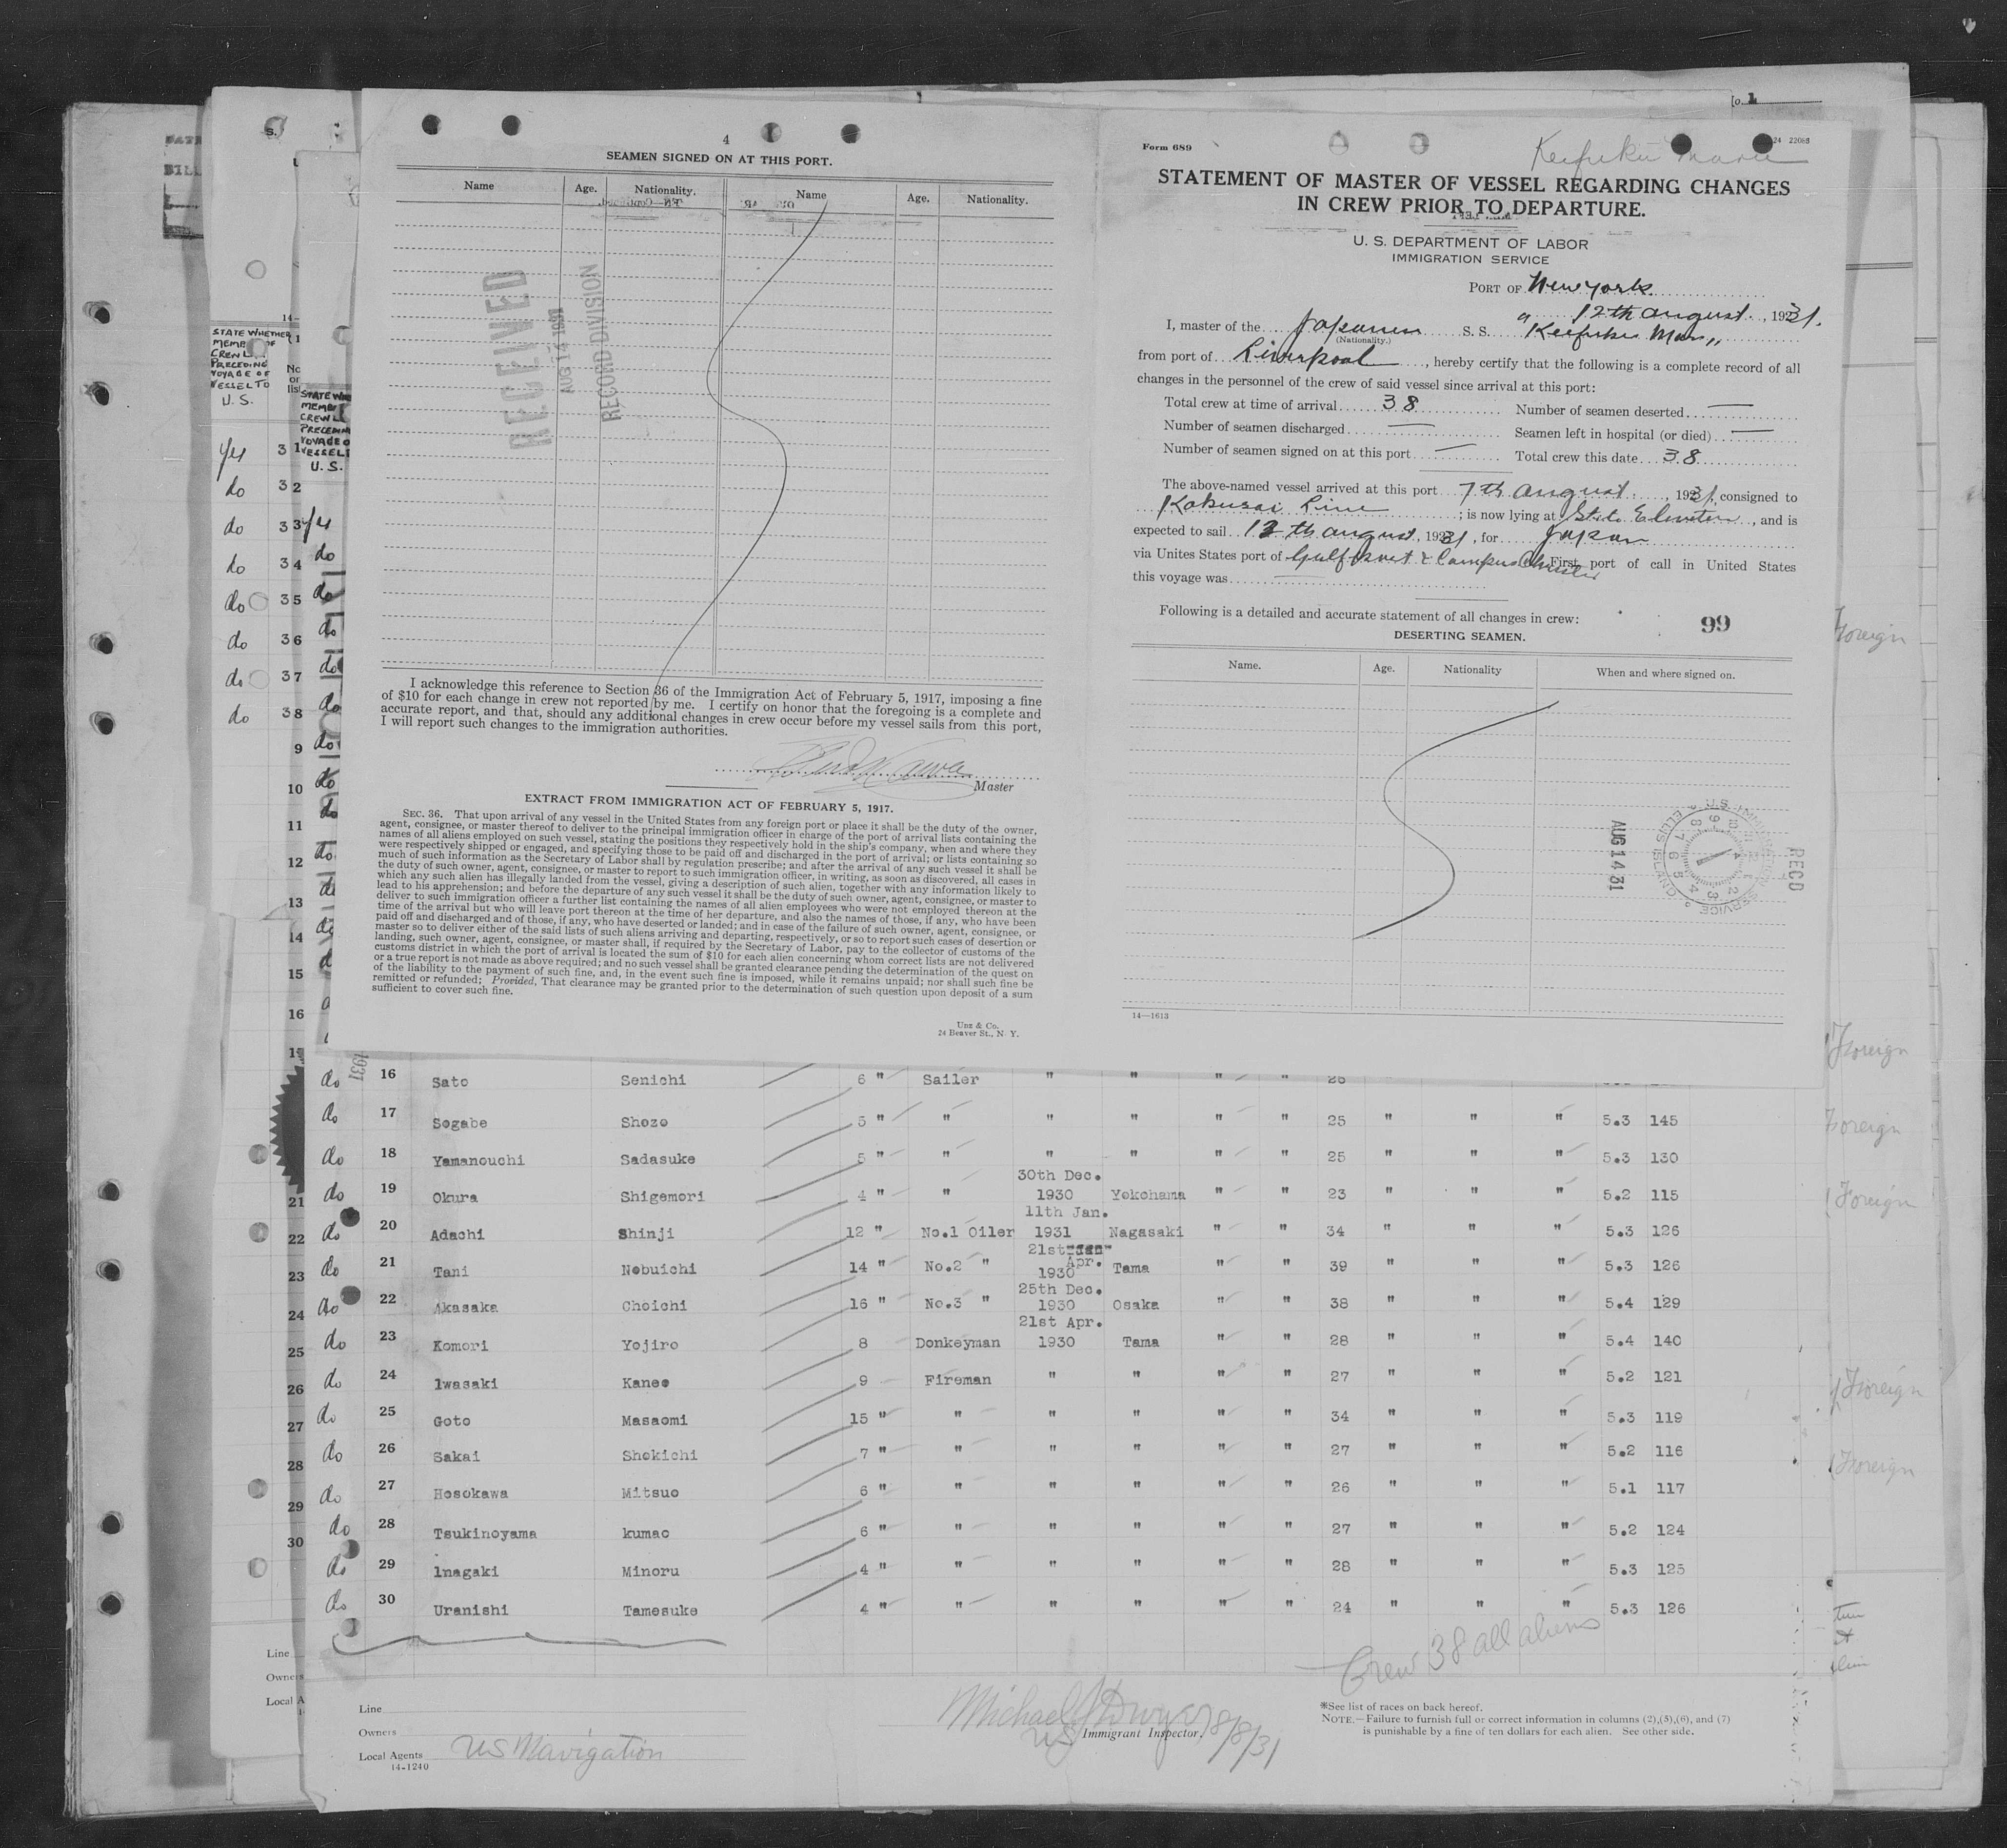 4
SEAMEN SIGNED ON AT THIS PORT.
Name Age. Nationality. Name Age. Nationality.
RECEIVED
AUG 14 1931
RECORD DIVISION
I acknowledge this reference to Section 36 of the Immigration Act of February 5, 1917, imposing a fine
of $10 for each change in crew not reported by me. I certify on honor that the foregoing is a complete and
accurate report, and that, should any additional changes in crew occur before my vessel sails from this port,
I will report such changes to the immigration authorities.
Master
EXTRACT FROM IMMIGRATION ACT OF FEBRUARY 5, 1917.
SEC. 36. That upon arrival of any vessel in the United States from any foreign port or place it shall be the duty of the owner,
agent, consignee, or master thereof to deliver to the principal immigration officer in charge of the port of arrival lists containing the
names of all aliens employed on such vessel, stating the positions they respectively hold in the ship's company, when and where they
were respectively shipped or engaged, and specifying those to be paid off and discharged in the port of arrival; or lists containing so
much of such information as the Secretary of Labor shall by regulation prescribe; and after the arrival of any such vessel it shall be
the duty of such owner, agent, consignee, or master to report to such immigration officer, in writing, as soon as discovered, all cases in
which any such alien has illegally landed from the vessel, giving a description of such alien, together with any information likely to
lead to his apprehension; and before the departure of any such vessel it shall be the duty of such owner, agent, consignee, or master to
deliver to such immigration officer a further list containing the names of all alien employees who were not employed thereon at the
time of the arrival but who will leave port thereon at the time of her departure, and also the names of those, if any, who have been
paid off and discharged and of those, if any, who have deserted or landed; and in case of the failure of such owner, agent, consignee, or
master so to deliver either of the said lists of such aliens arriving and departing, respectively, or so to report such cases of desertion or
landing, such owner, agent, consignee, or master shall, if required by the Secretary of Labor, pay to the collector of customs of the
customs district in which the port of arrival is located the sum of $10 for each alien concerning whom correct lists are not delivered
or a true report is not made as above required; and no such vessel shall be granted clearance pending the determination of the quest on
of the liability to the payment of such fine, and, in the event such fine is imposed, while it remains unpaid; nor shall such fine be
remitted or refunded; Provided, That clearance may be granted prior to the determination of such question upon deposit of a sum
sufficient to cover such fine.
Unz & Co.
24 Beaver St., N. Y.
Form 689
Keifuku Maru
24 22068
STATEMENT OF MASTER OF VESSEL REGARDING CHANGES
IN CREW PRIOR TO DEPARTURE.
U. S. DEPARTMENT OF LABOR
IMMIGRATION SERVICE
PORT OF New York
12th August, 1931.
I, master of the Japanese S. S. "Keifuku Maru"
(Nationality.)
from port of Liverpool, hereby certify that the following is a complete record of all
changes in the personnel of the crew of said vessel since arrival at this port:
Total crew at time of arrival 38 Number of seamen deserted —
Number of seamen discharged — Seamen left in hospital (or died) —
Number of seamen signed on at this port — Total crew this date 38
The above-named vessel arrived at this port 7th August, 1931, consigned to
Kokusai Line; is now lying at State Elevator, and is
expected to sail 13th August, 1931, for Japan
via Unites States port of Gulfport & Campus Christi First port of call in United States
this voyage was —
Following is a detailed and accurate statement of all changes in crew:
99
DESERTING SEAMEN.
Name. Age. Nationality When and where signed on.
AUG 14 31
U.S. IMMIGRATION SERVICE
ELLIS ISLAND
RECD
14—1613
STATE WHETHER
MEMB OF
CREW
PRECEDING
VOYAGE OF
VESSEL TO
U. S.
yes 31
do 32
do 33
do 34
do 35
do 36
do 37
do 38
9
10
11
12
13
14
15
16
21
22
23
24
25
26
27
28
29
30
do 16 Sato Senichi 6 " Sailer " " " " 26
do 17 Sogabe Shozo 5 " " " " " " 25 " " " 5.3 145
do 18 Yamanouchi Sadasuke 5 " " " " " " 25 " " " 5.3 130
do 19 Okura Shigemori 4 " " 30th Dec. 1930 Yokohama " " 23 " " " 5.2 115
do 20 Adachi Shinji 12 " No.1 Oiler 11th Jan. 1931 Nagasaki " " 34 " " " 5.3 126
do 21 Tani Nobuichi 14 " No.2 " 21st Apr. 1930 Tama " " 39 " " " 5.3 126
do 22 Akasaka Choichi 16 " No.3 " 25th Dec. 1930 Osaka " " 38 " " " 5.4 129
do 23 Komori Yojiro 8 Donkeyman 21st Apr. 1930 Tama " " 28 " " " 5.4 140
do 24 lwasaki Kaneo 9 Fireman " " " " 27 " " " 5.2 121
do 25 Goto Masaomi 15 " " " " " " 34 " " " 5.3 119
do 26 Sakai Shokichi 7 " " " " " " 27 " " " 5.2 116
do 27 Hosokawa Mitsuo 6 " " " " " " 26 " " " 5.1 117
do 28 Tsukinoyama kumao 6 " " " " " " 27 " " " 5.2 124
do 29 lnagaki Minoru 4 " " " " " " 28 " " " 5.3 125
do 30 Uranishi Tamesuke 4 " " " " " " 24 " " " 5.3 126
Crew 38 all aliens
Line
Owners
Local Agents US Navigation
14-1240
Michael J Dwyer 8/8/31
US Immigrant Inspector.
*See list of races on back hereof.
NOTE.—Failure to furnish full or correct information in columns (2),(5),(6), and (7)
is punishable by a fine of ten dollars for each alien. See other side.
Foreign
Foreign
Foreign
Foreign
Foreign
Foreign